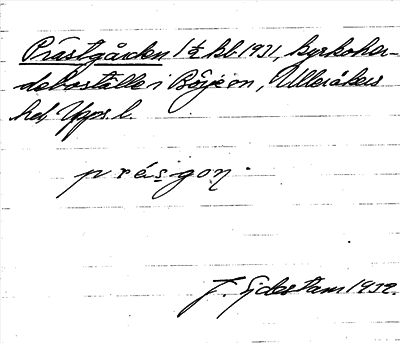 Prästgården 1 ½ kl. 1931, kyrkoher-
deboställe i Börje sn, Ulleråkers
hd Upps. l.
prés·gon.
F. Sjdestam 1932.